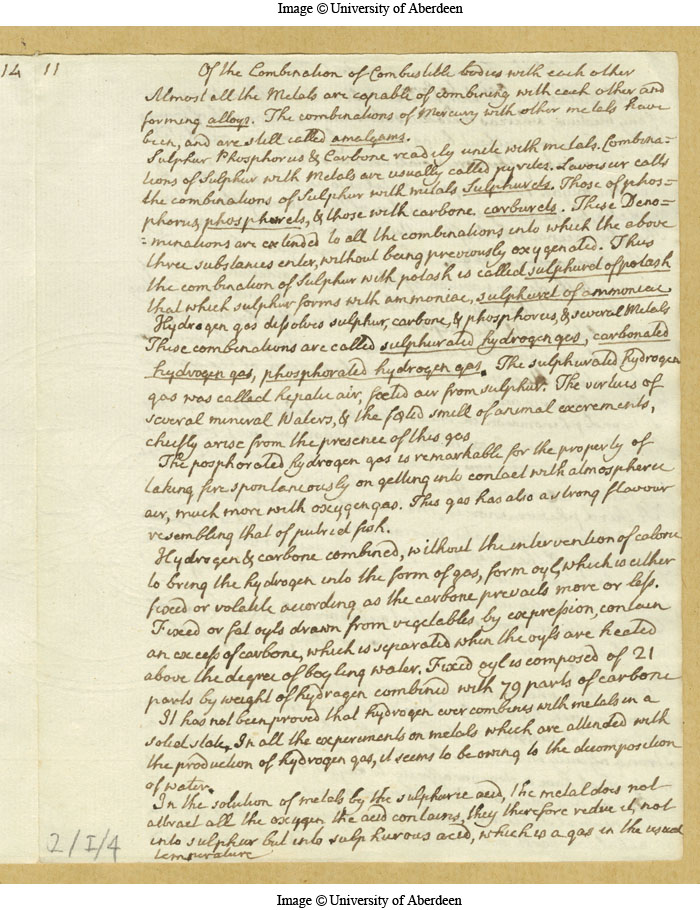 Image © University of Aberdeen
14 11
Of the Combination of Combustible bodies with each other
Almost all the Metals are capable of combining with each other and
forming alloys. The combinations of Mercury with other metals have
been, and are still called amalgams.
Sulphur Phosphorus & Carbone readily unite with metals. Combina-
tions of Sulphur with Metals are usually called pyrites. Lavoisier calls
the combinations of Sulphur with metals Sulphurets. Those of phos=
phorus phosphorets, & those with carbone carburets. These Deno=
=minations are extended to all the combinations into which the above
three substances enter, without being previously oxygenated. Thus
the combination of Sulphur with potash is called sulphuret of potash
that which sulphur forms with ammoniac, sulphuret of ammoniac
Hydrogen gas dissolves sulphur, carbone, & phosphorus, & several Metals
These combinations are called sulphurated hydrogen gas, carbonated
hydrogen gas, phosphorated hydrogen gas. The sulphurated hydrogen
gas was called hepatic air, foetid air from sulphur. The virtues of
several mineral Waters, & the foetid smell of animal excrements,
chiefly arise from the presence of this gas
The posphorated hydrogen gas is remarkable for the property of
taking fire spontaneously on getting into contact with atmospheric
air, much more with oxygen gas. This gas has also a strong flavour
resembling that of putrid fish.
Hydrogen & carbone combined, without the intervention of caloric
to bring the hydrogen into the form of gas, form oyl, which is either
fixed or volatile according as the carbone prevails more or less.
Fixed or fat oyls drawn from vegetables by expression, contain
an excess of carbone, which is separated when the oyls are heated
above the degree of boyling water. Fixed oyl is composed of 21
parts by weight of hydrogen combined with 79 parts of carbone
It has not been proved that hydrogen ever combines with metals in a
solid state. In all the experiments on metals which are attended with
the production of hydrogen gas, it seems to be owing to the decomposition
of water.
In the solution of metals by the sulphuric acid, the metal does not
attract all the oxygen the acid contains, they therefore reduce it, not
into sulphur but into sulphurous acid, which is a gas in the usual
temperature
2/I/4
Image © University of Aberdeen